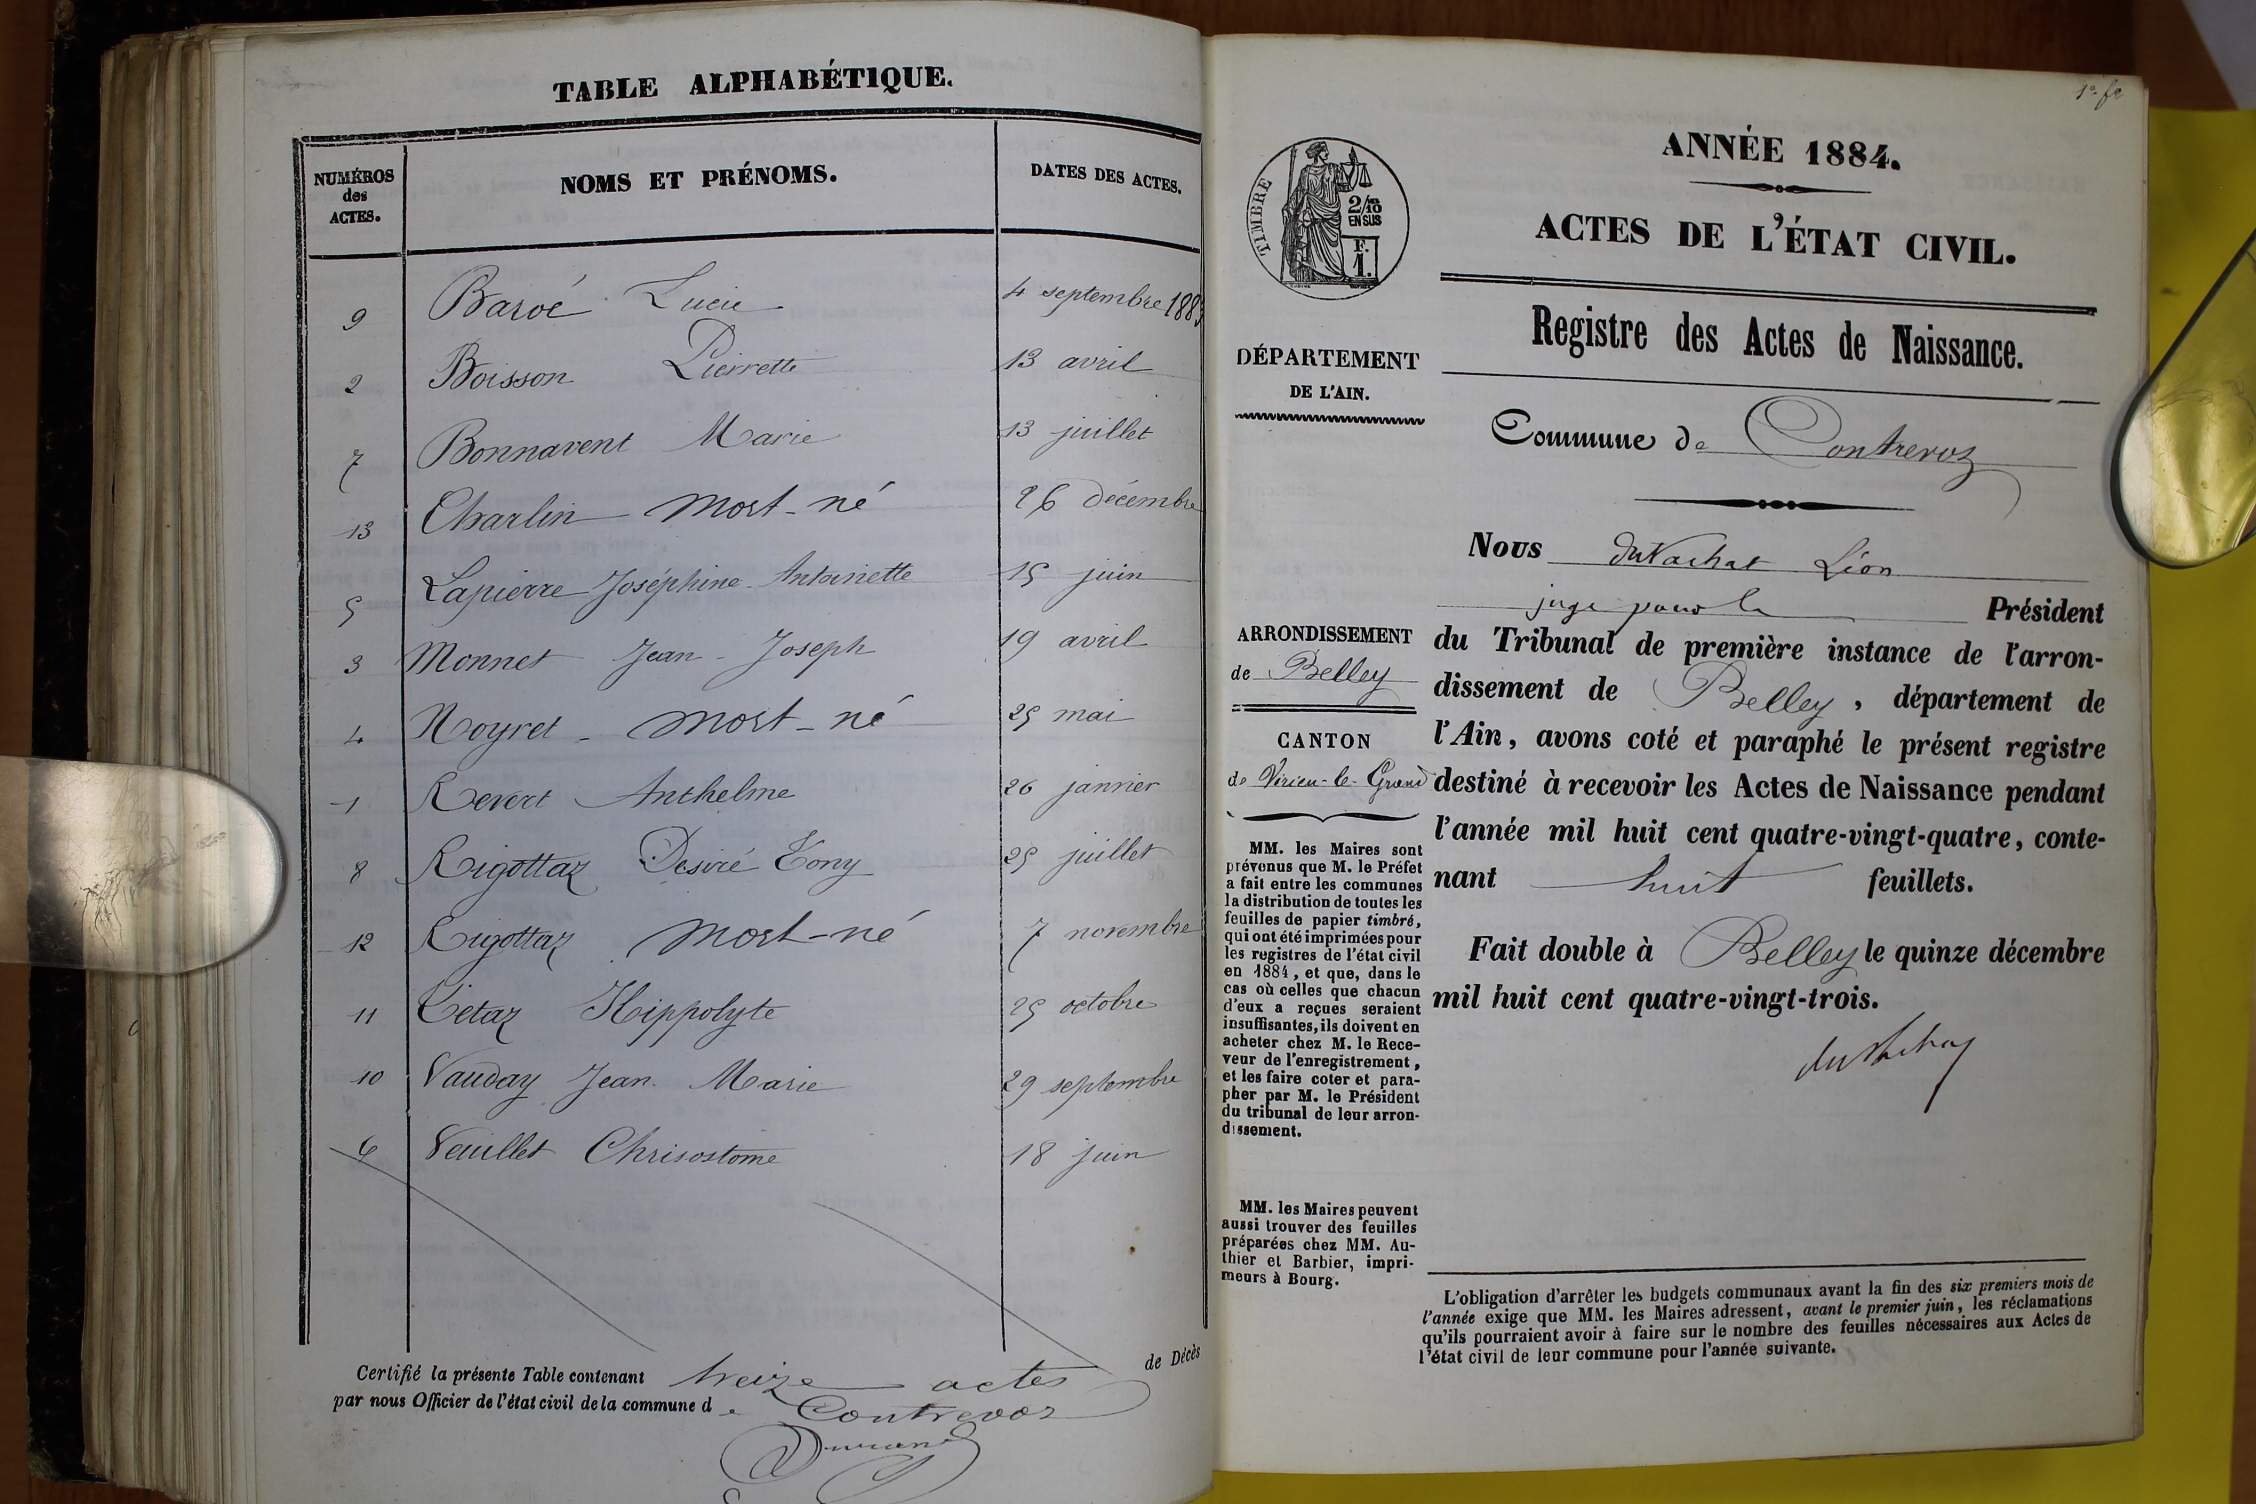 TABLE ALPHABÉTIQUE.
NUMÉROS des ACTES.
NOMS ET PRÉNOMS.
DATES DES ACTES.
9 Baroé Lucie 4 septembre 1883
2 Boisson Pierrette 13 avril
7 Bonnavent Marie 13 juillet
13 Charlin Mort-né 26 décembre
5 Lapierre Joséphine Antoinette 15 juin
3 Monnet Jean-Joseph 19 avril
4 Noyret - Mort-né 25 mai
1 Revert Anthelme 26 janvier
8 Rigottaz Desiré Tony 25 juillet
12 Rigottaz Mort-né 7 novembre
11 Tétaz Hippolyte 25 octobre
10 Vauday Jean Marie 29 septembre
6 Veuillet Chrisostome 18 juin
Certifié la présente Table contenant treize actes de Décès
par nous Officier de l'état civil de la commune de Contrevoz
Durand
1er fe
ANNÉE 1884.
ACTES DE L'ÉTAT CIVIL.
TIMBRE
2/10
EN SUS
F.
1.
Registre des Actes de Naissance.
DÉPARTEMENT
DE L'AIN.
Commune de Contrevoz
Nous duVachat Léon
juge pour le Président
ARRONDISSEMENT
de Belley
CANTON
de Virieu-le-Grand
du Tribunal de première instance de l'arron-
dissement de Belley, département de
l'Ain, avons coté et paraphé le présent registre
destiné à recevoir les Actes de Naissance pendant
l'année mil huit cent quatre-vingt-quatre, conte-
nant huit feuillets.
Fait double à Belley le quinze décembre
mil huit cent quatre-vingt-trois.
duVachat
MM. les Maires sont
prévenus que M. le Préfet
a fait entre les communes
la distribution de toutes les
feuilles de papier timbré,
qui ont été imprimées pour
les registres de l'état civil
en 1884, et que, dans le
cas où celles que chacun
d'eux a reçues seraient
insuffisantes, ils doivent en
acheter chez M. le Rece-
veur de l'enregistrement,
et les faire coter et para-
pher par M. le Président
du tribunal de leur arron-
dissement.
MM. les Maires peuvent
aussi trouver des feuilles
préparées chez MM. Au-
thier et Barbier, impri-
meurs à Bourg.
L'obligation d'arrêter les budgets communaux avant la fin des six premiers mois de
l'année exige que MM. les Maires adressent, avant le premier juin, les réclamations
qu'ils pourraient avoir à faire sur le nombre des feuilles nécessaires aux Actes de
l'état civil de leur commune pour l'année suivante.